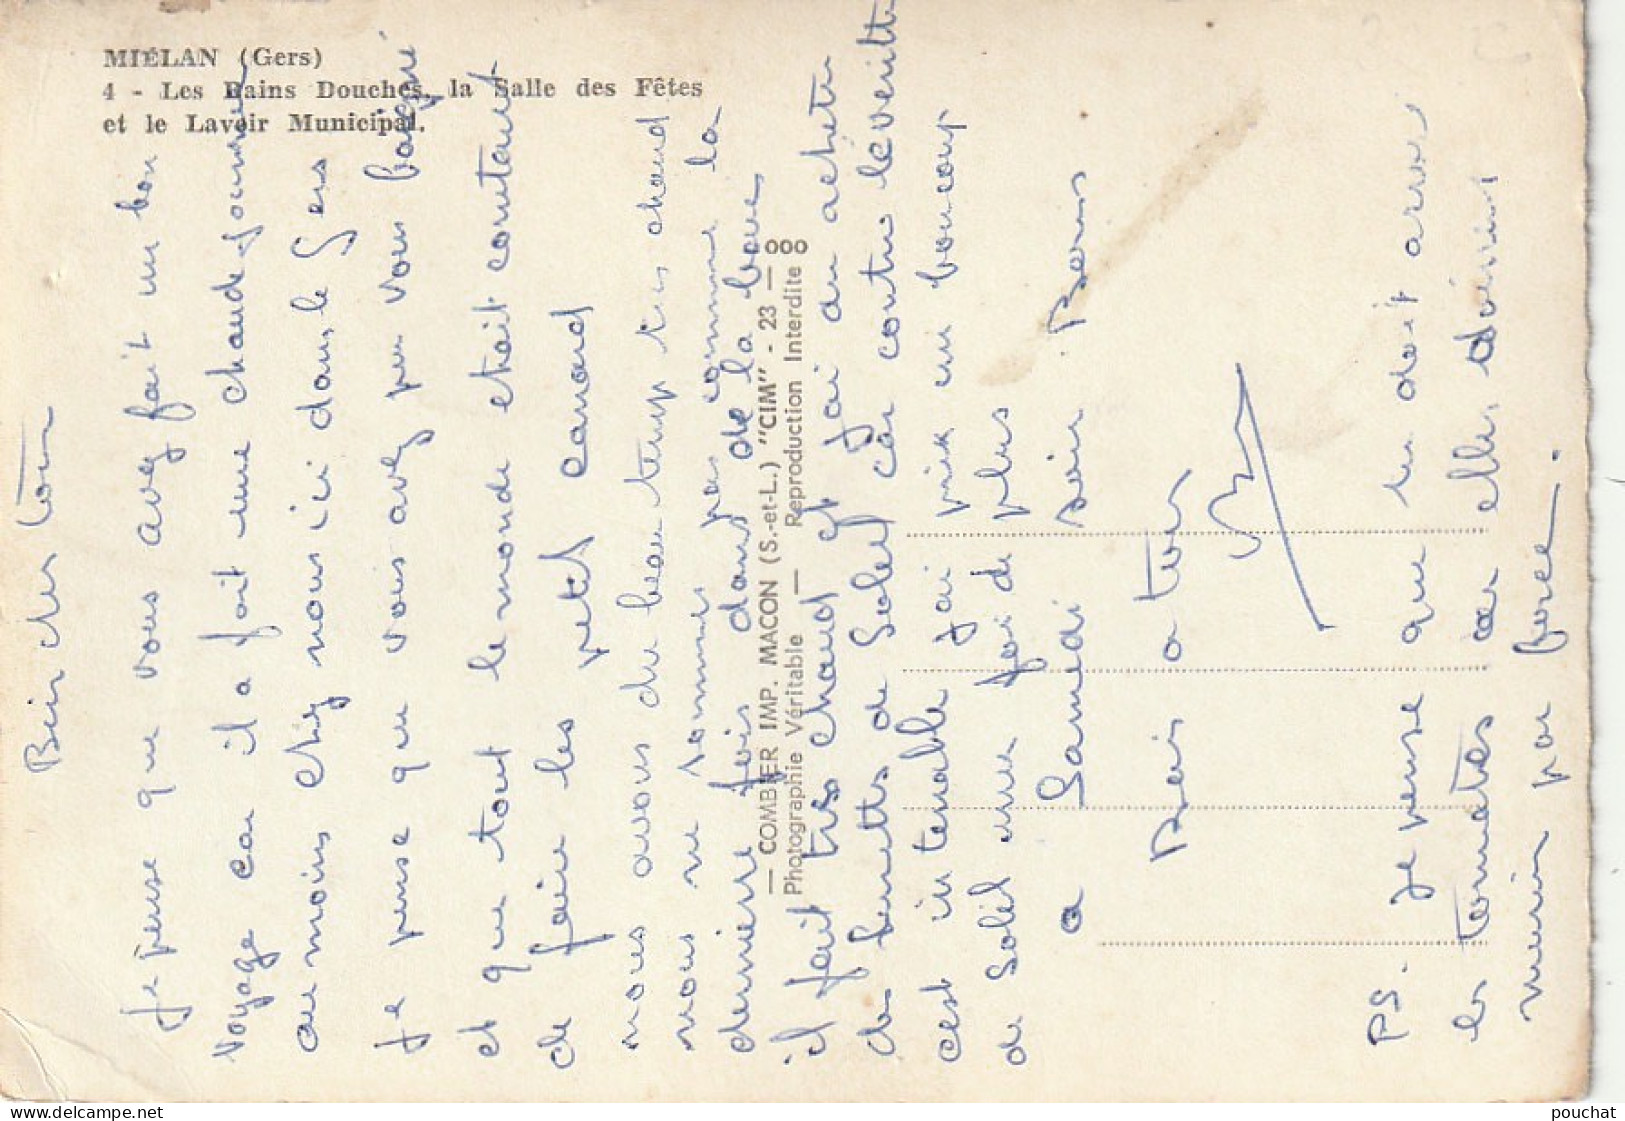 MIÉLAN (Gers)
4 - Les Bains Douches, la Salle des Fêtes
et le Lavoir Municipal.
— COMBIER IMP. MACON (S.-et-L.) "CIM" - 23 — 000
Photographie Véritable — Reproduction Interdite
Bien cher tous
Je pense que vous avez fait un bon
voyage car il a fait une chaude journee
au moins chez nous ici dans le Gers
Je pense que vous avez pu vous baigné
et que tout le monde etait contant
de faire les petit canard
nous avons du beau temp tres chaud
nous ne sommes pas comme la
derniere fois dans de la boue
il fait tres chaud et Jai du acheter
des lunettes de Soleil car contre le verité
cest in tenable Jai pris un boucoup
de Soleil une foi de plus
a Samedi soir Bons
Bais a tous
PS. Je pense que tu doit arroser
les tomates car elles doivent
mûrir par force.
delcampe.net
pouchat